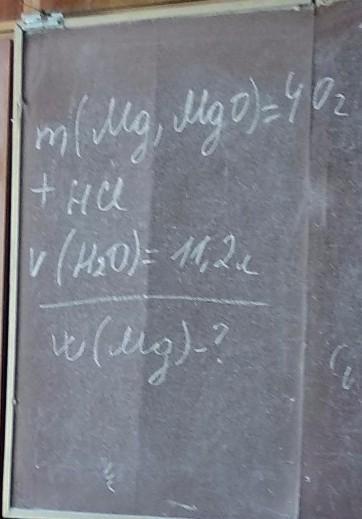 m(Mg, MgO)=40г
+ HCl
V(H₂O)= 11,2л
w(Mg)-?